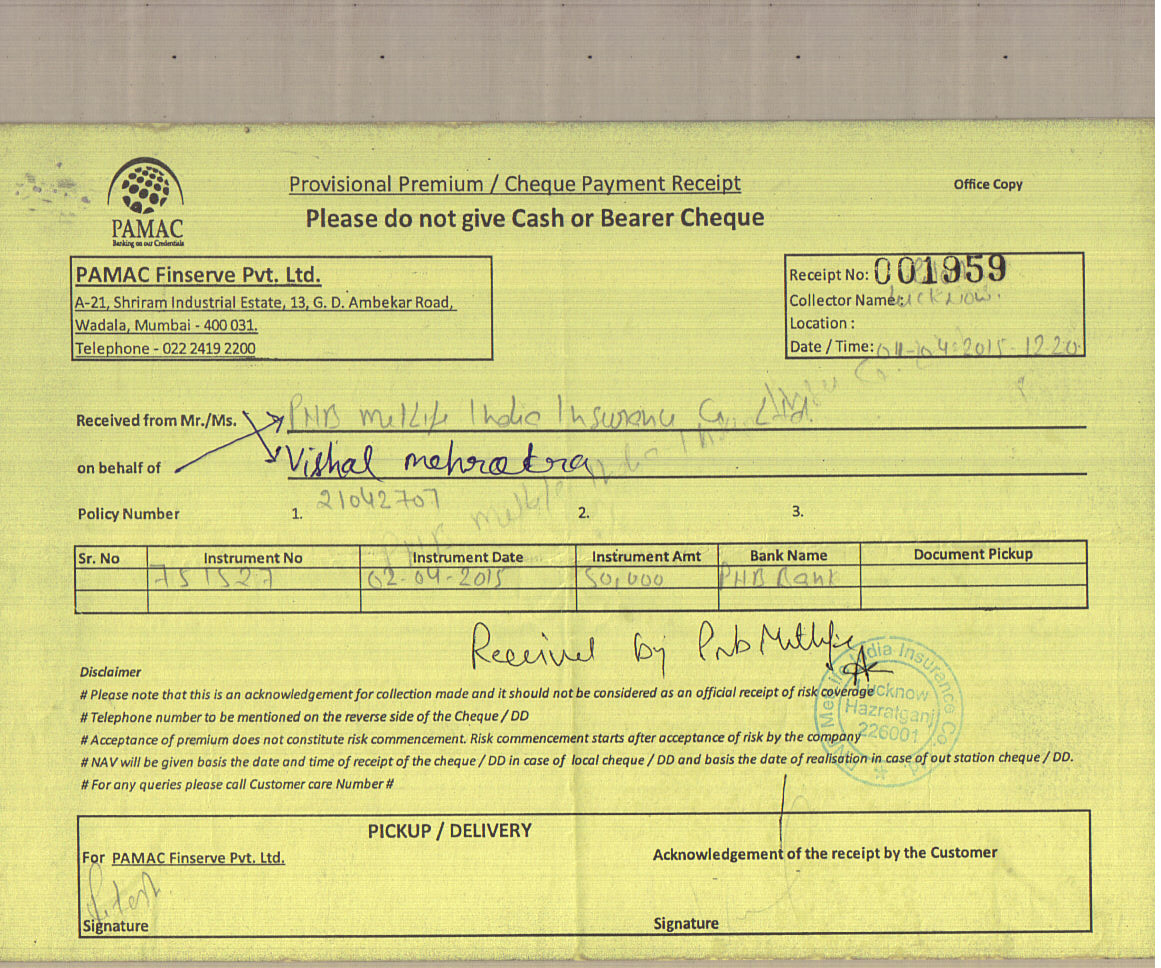 PAMAC
Banking on our Credentials
Provisional Premium / Cheque Payment Receipt
Office Copy
Please do not give Cash or Bearer Cheque
PAMAC Finserve Pvt. Ltd.
A-21, Shriram Industrial Estate, 13, G. D. Ambekar Road,
Wadala, Mumbai - 400 031.
Telephone - 022 2419 2200
Receipt No: 001959
Collector Name: Lucknow.
Location :
Date / Time: 04-04-2015-12.20
Received from Mr./Ms. PNB Metlife India Insurance Co. Ltd.
on behalf of Vishal mehrotra
Policy Number 1. 21042707 2. 3.
Sr. No Instrument No Instrument Date Instrument Amt Bank Name Document Pickup
751527 02-04-2015 50,000 PNB Bank
Received by Pnb Metlife
Disclaimer
# Please note that this is an acknowledgement for collection made and it should not be considered as an official receipt of risk coverage
# Telephone number to be mentioned on the reverse side of the Cheque / DD
# Acceptance of premium does not constitute risk commencement. Risk commencement starts after acceptance of risk by the company
# NAV will be given basis the date and time of receipt of the cheque / DD in case of local cheque / DD and basis the date of realisation in case of out station cheque / DD.
# For any queries please call Customer care Number #
India Insurance Co
Lucknow
Hazratganj
226001
PICKUP / DELIVERY
For PAMAC Finserve Pvt. Ltd.
Acknowledgement of the receipt by the Customer
Signature
Signature